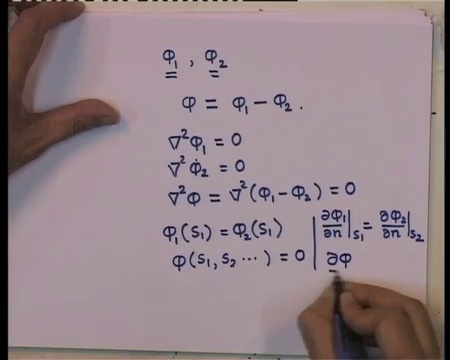 φ₁ , φ₂
φ = φ₁ − φ₂ .
∇²φ₁ = 0
∇²φ₂ = 0
∇²φ = ∇²(φ₁ − φ₂) = 0
φ₁(S₁) = φ₂(S₁) | ∂φ₁/∂n|S₁ = ∂φ₂/∂n|S₂
φ(S₁, S₂ ···) = 0 | ∂φ